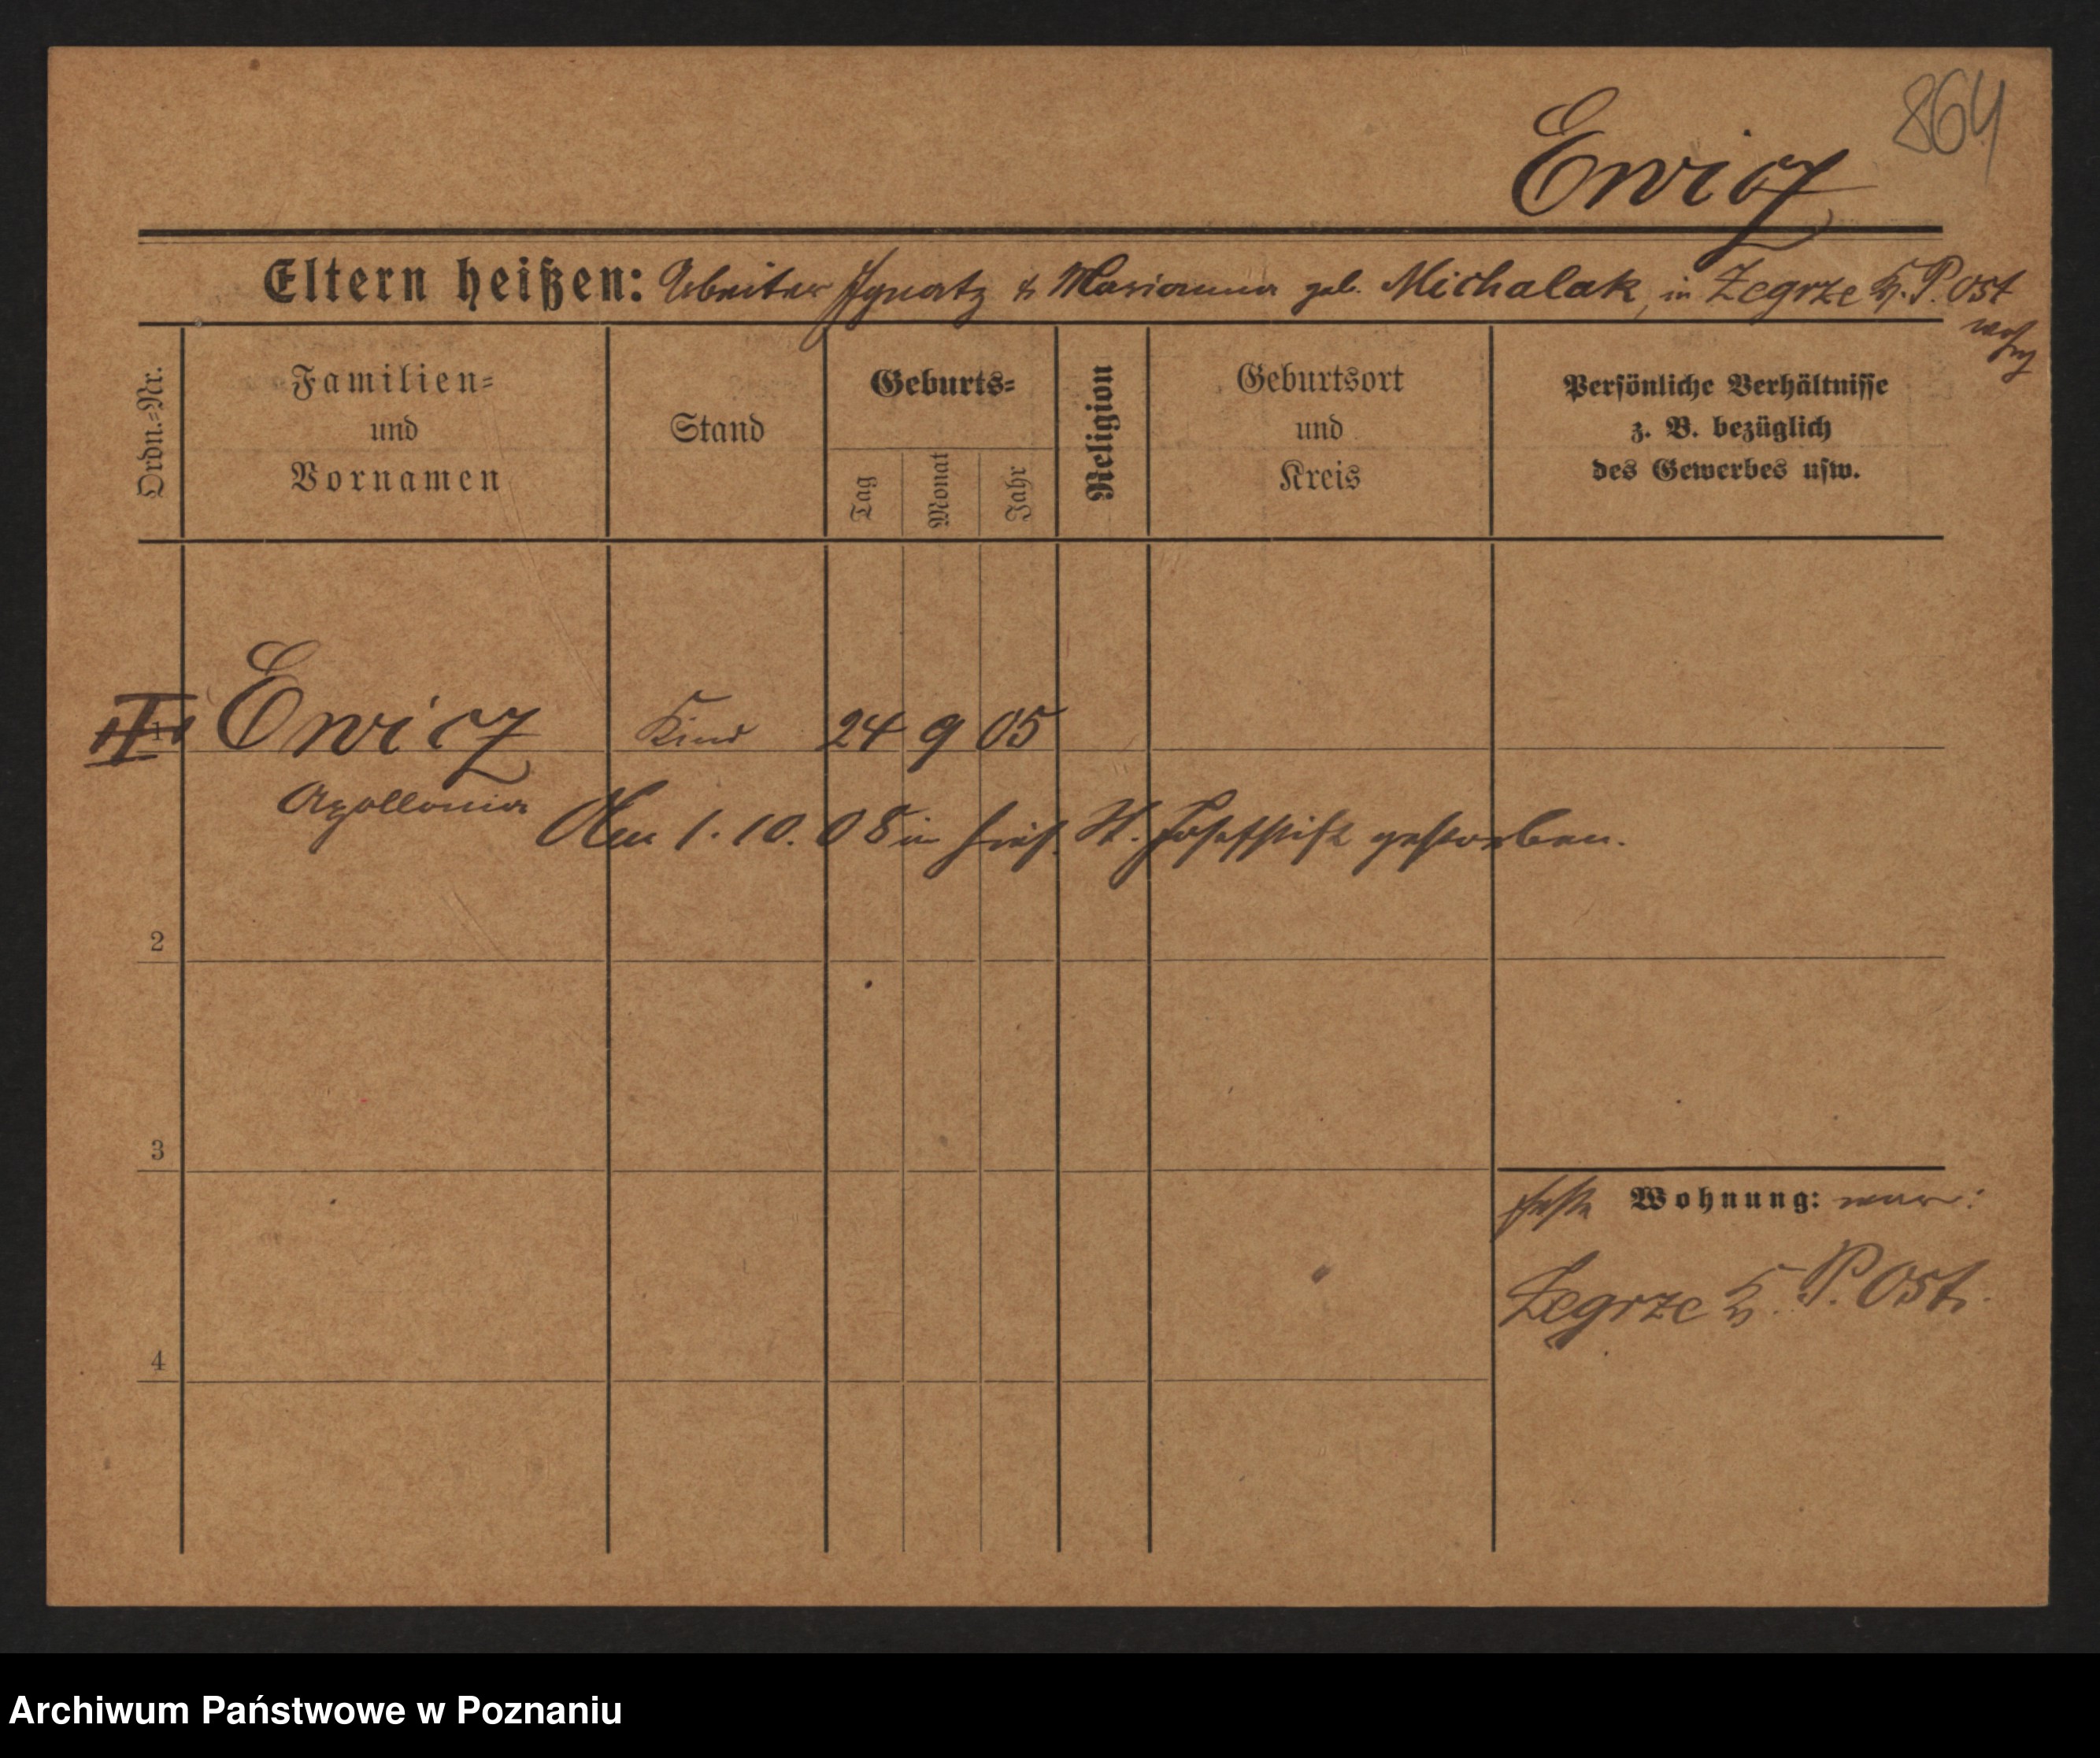 864
Ewicz
Eltern heißen: Arbeiter Ignatz & Marianna geb. Michalak, in Zegrze K. P. Ost
wohn
Ordn.=Nr.
Familien=
und
Vornamen
Stand
Geburts=
Tag
Monat
Jahr
Religion
Geburtsort
und
Kreis
Persönliche Verhältnisse
z. B. bezüglich
des Gewerbes usw.
1 Ewicz Kind 24 9 05
Apollonia
Am 1. 10. 08 im hies. St. Josefstift gestorben.
2
3
Wohnung: war:
Zegrze K. P. Ost.
4
Archiwum Państwowe w Poznaniu